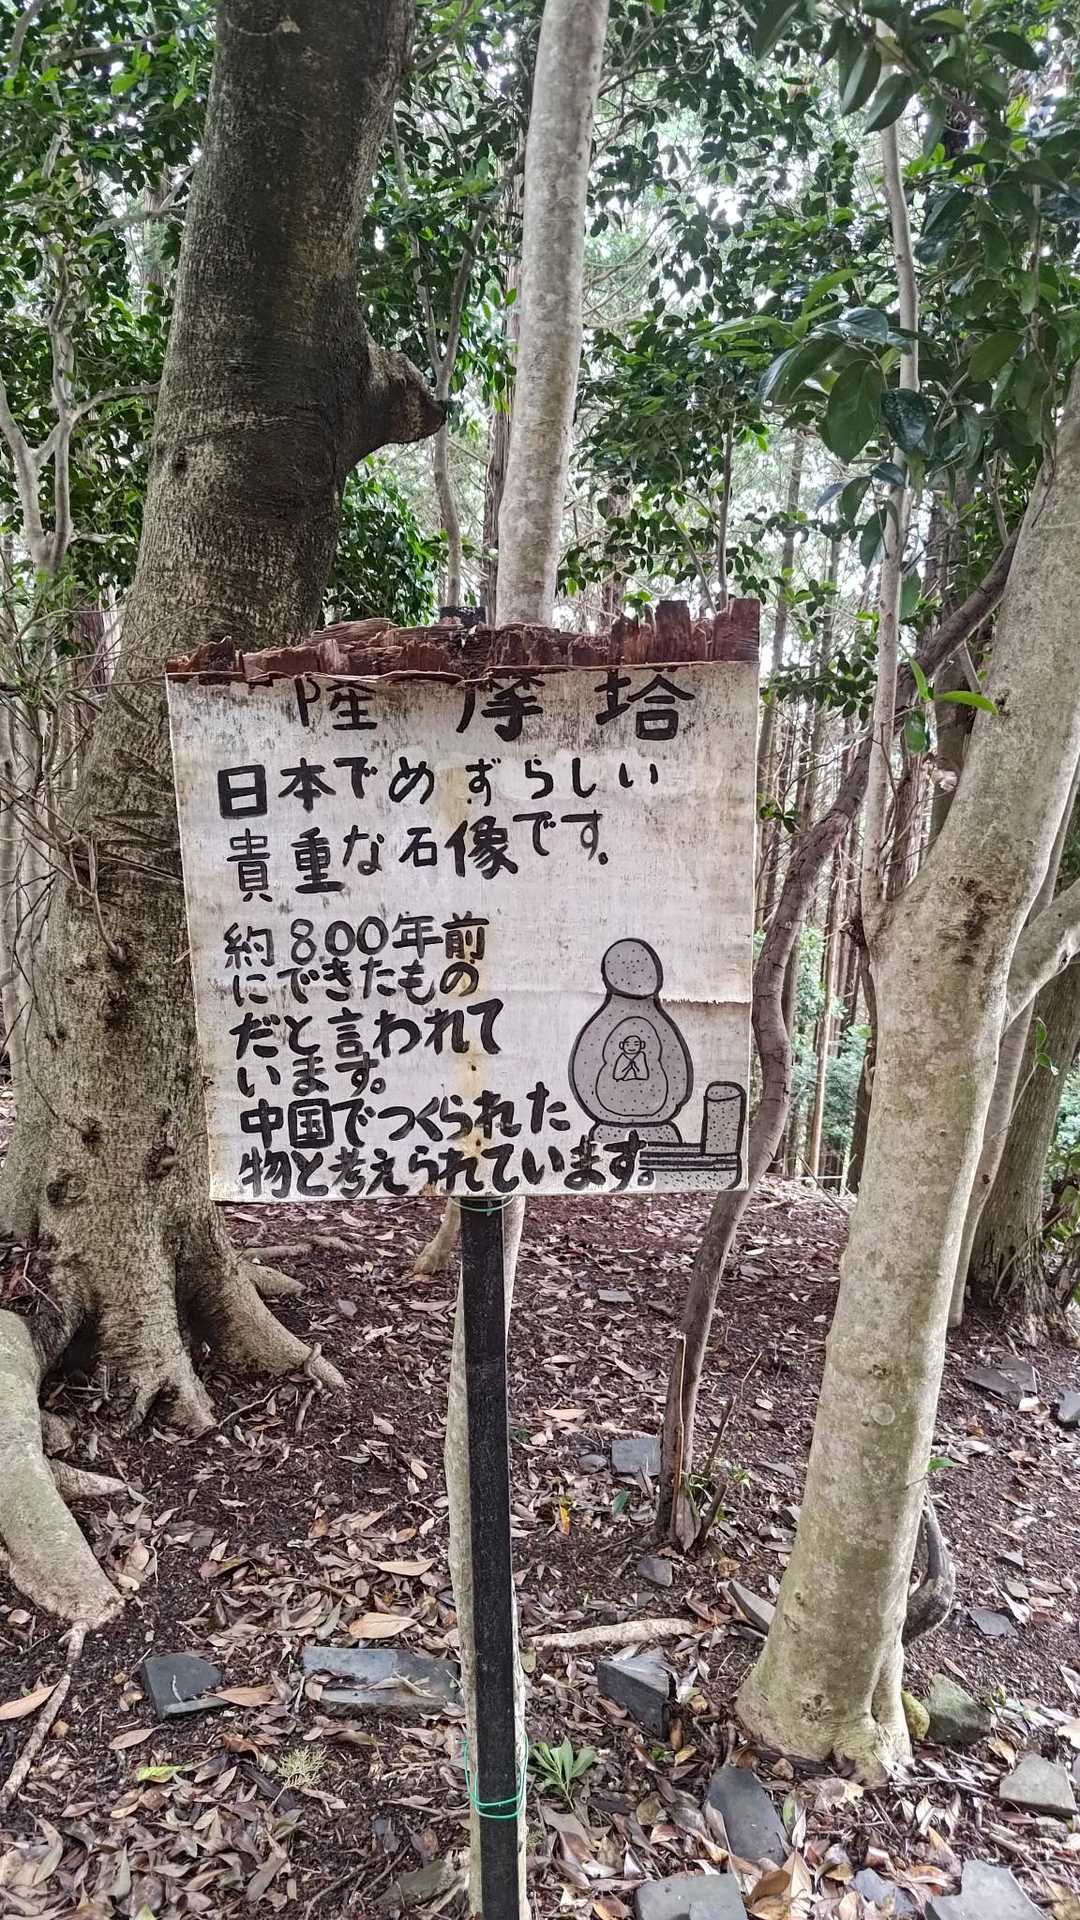 陸摩塔
日本でめずらしい
貴重な石像です。
約800年前
にできたもの
だと言われて
います。
中国でつくられた
物と考えられています。